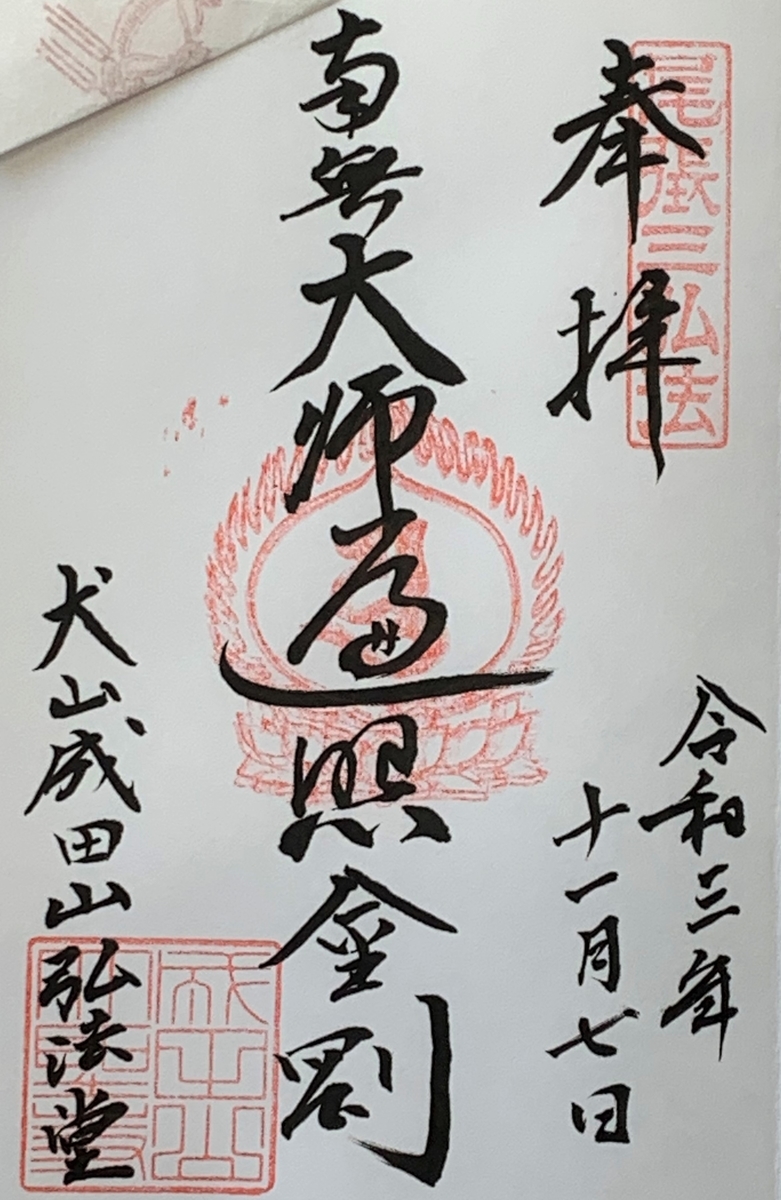 奉拝
尾張三弘法
令和三年
十一月七日
南無大師遍照金剛
犬山成田山弘法堂